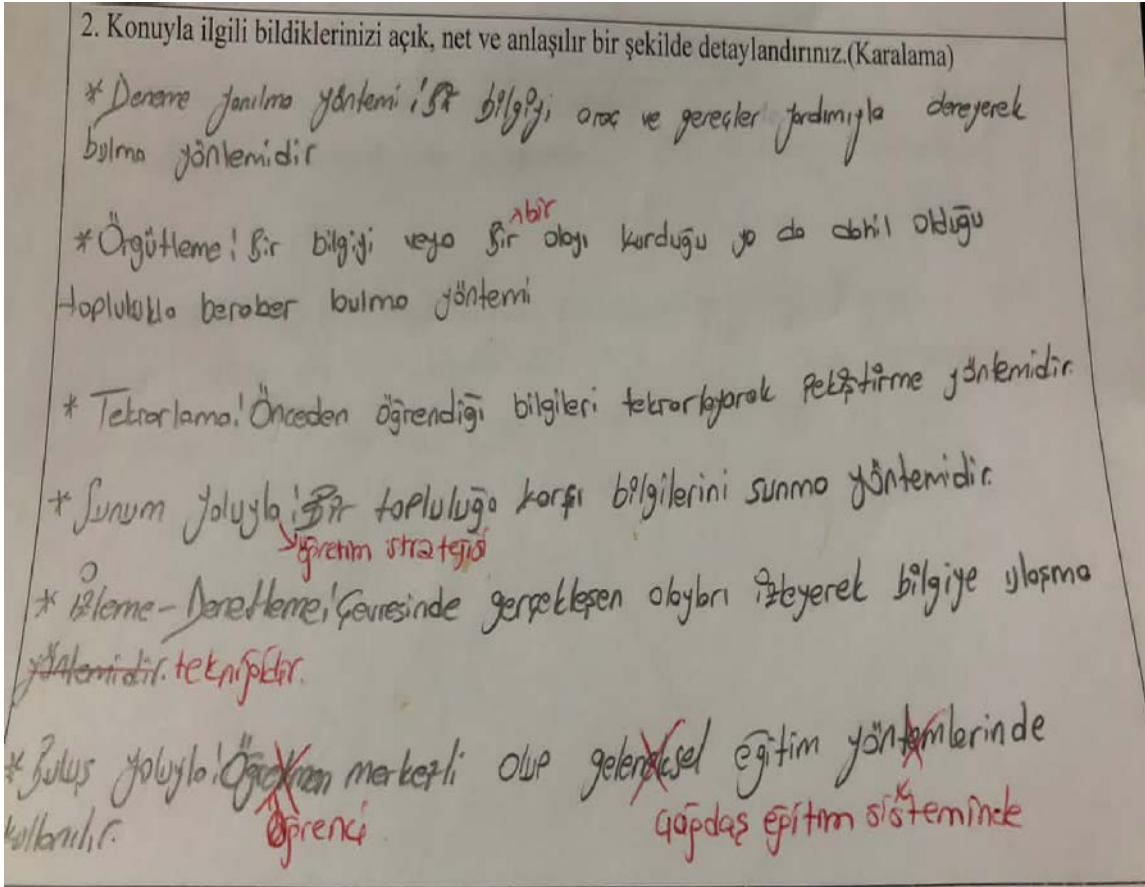 2. Konuyla ilgili bildiklerinizi açık, net ve anlaşılır bir şekilde detaylandırınız.(Karalama)
* Deneme yanılma yöntemi: Bir bilgiyi araç ve gereçler yardımıyla deneyerek
bulma yöntemidir
^bir
* Örgütleme: Bir bilgiyi veya Bir olayı kurduğu ya da dahil olduğu
toplulukla beraber bulma yöntemi
* Tekrarlama: Önceden öğrendiği bilgileri tekrarlayarak Pekiştirme yöntemidir.
* Sunum Yoluyla: Bir topluluğa karşı bilgilerini sunma yöntemidir.
öğretim stratejisi
* İzleme-Denetleme: Çevresinde gerçekleşen olayları izleyerek bilgiye ulaşma
yöntemidir. tekniğidir.
* Buluş Yoluyla: Öğretmen merkezli olup geleneksel eğitim yöntemlerinde
kullanılır. Öğrenci Çağdaş eğitim sisteminde